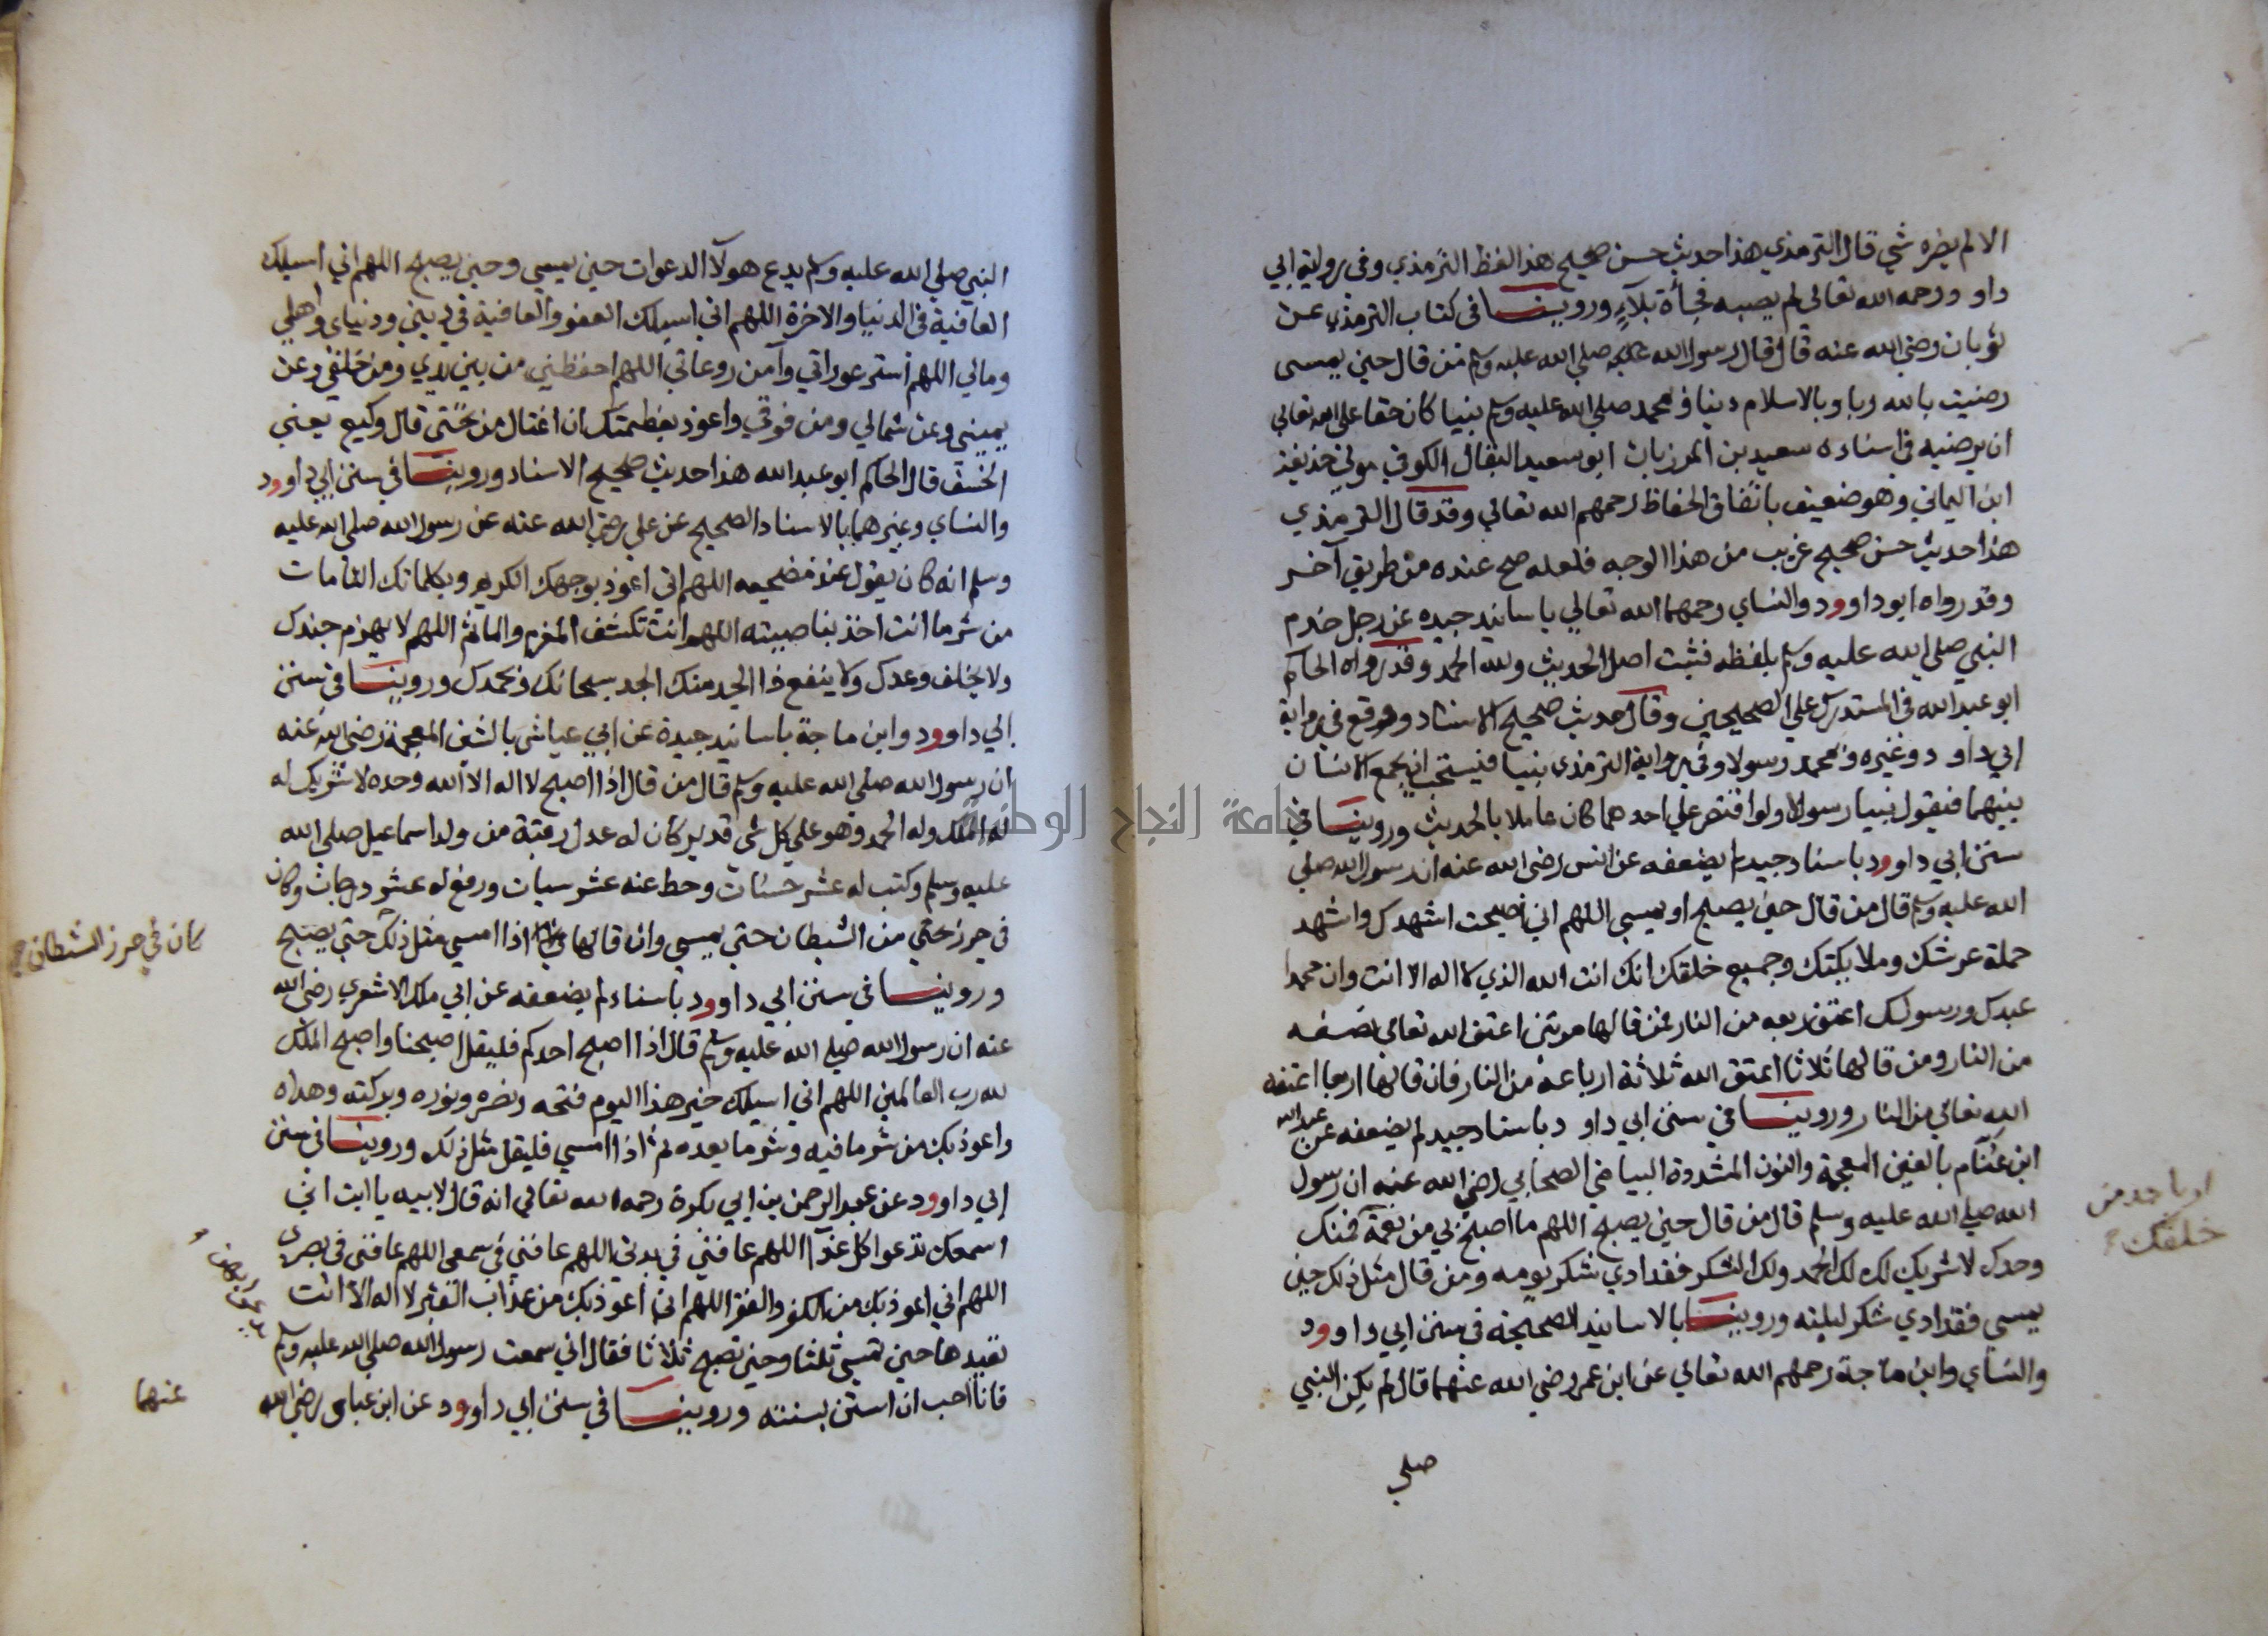 الا لم يضره شي قال الترمذي هذا حديث حسن صحيح هذا لفظ الترمذي وفي رواية ابي
داوود رحمه الله تعالى لم يصبه فجأة بلاءٍ وروينا في كتاب الترمذي عن
ثوبان رضي الله عنه قال قال رسول الله صلي الله عليه وسلم من قال حين يمسى
رضيت بالله ربا وبالاسلام دينا وبمحمد صلي الله عليه وسلم نبيا كان حقا على الله تعالي
ان يرضيه في اسناده سعيد بن المرزبان ابو سعيد البقال الكوفي مولى حذيفة
ابن اليماني وهو ضعيف باتفاق الحفاظ رحمهم الله تعالي وقد قال الترمذي
هذا حديث حسن صحيح غريب من هذا الوجه فلعله صح عنده من طريق آخر
وقد رواه ابو داوود والنساي رحمهما الله تعالي باسانيد جيده عن رجل خدم
النبي صلي الله عليه وسلم بلفظه فثبت اصل الحديث ولله الحمد وقد رواه الحاكم
ابو عبد الله في المستدرك علي الصحيحين وقال حديث صحيح الاسناد ووقع في رواية
ابي داود وغيره وبمحمد رسولا وفي رواية الترمذي نبيا فيستحب ان يجمع الانسان
بينهما فيقول نبيا رسولا ولو اقتصر علي احدهما كان عاملا بالحديث وروينا في
سنن ابي داوود باسناد جيد لم يضعفه عن انس رضي الله عنه ان رسول الله صلي
الله عليه وسلم قال من قال حين يصبح او يمسي اللهم اني اصبحت اشهدك واشهد
حملة عرشك وملايكتك وجميع خلقك انك انت الله الذي لا اله الا انت وان محمدا
عبدك ورسولك اعتق ربعه من النار فمن قالها مرتين اعتق الله تعالي نصفه
من النار ومن قالها ثلاثا اعتق الله ثلاثة ارباعه من النار فان قالها اربعا اعتقه
الله تعالي من النار وروينا في سنن ابي داود باسناد جيد لم يضعفه عن عبد الله
ابن غنّام بالغين المعجمة والنون المشددة البياضي الصحابي رضي الله عنه ان رسول
الله صلي الله عليه وسلم قال من قال حين يصبح اللهم ما اصبح بي من نعمة فمنك
وحدك لا شريك لك لك الحمد ولك الشكر فقد ادي شكر يومه ومن قال مثل ذلك حين
يمسي فقد ادي شكر ليلته وروينا بالاسانيد الصحيحة في سنن ابي داوود
والنساي وابن ماجة رحمهم الله تعالي عن ابن عمر رضي الله عنهما قال لم يكن النبي
صلي
او باحد من
خلقك
النبي صلي الله عليه وسلم يدع هولآ الدعوات حين يمسي وحين يصبح اللهم اني اسيلك
العافية في الدنيا والاخرة اللهم اني اسيلك العفو والعافية في ديني ودنياى واهلي
ومالي اللهم استر عوراتي وآمن روعاتي اللهم احفظني من بين يدي ومن خلفي وعن
يميني وعن شمالي ومن فوقي واعوذ بعظمتك ان اغتال من تحتي قال وكيع يعني
الخسف قال الحاكم ابو عبد الله هذا حديث صحيح الاسناد وروينا في سنن ابي داوود
والنساي وغيرهما بالاسناد الصحيح عن علي رضي الله عنه عن رسول الله صلي الله عليه
وسلم انه كان يقول عند مضجعه اللهم اني اعوذ بوجهك الكريم وبكلماتك التامات
من شر ما انت اخذ بناصيته اللهم انت تكشف المغرم والماثم اللهم لا يهزم جندك
ولا يخلف وعدك ولا ينفع ذا الجد منك الجد سبحانك وبحمدك وروينا في سنن
ابي داوود وابن ماجة باسانيد جيدة عن ابي عياش بالشين المعجمة رضي الله عنه
ان رسول الله صلي الله عليه وسلم قال من قال اذا اصبح لا اله الا الله وحده لا شريك له
له الملك وله الحمد وهو علي كل شي قدير كان له عدل رقبة من ولد اسماعيل صلي الله
عليه وسلم وكتب له عشر حسنات وحط عنه عشر سيات ورفع له عشر درجات وكان
في حرز حتي من الشيطان حتي يمسي وان قالها اذا امسي مثل ذلك حتي يصبح
وروينا في سنن ابي داوود باسناد لم يضعفه عن ابي ملك الاشعري رضي الله
عنه ان رسول الله صلي الله عليه وسلم قال اذا اصبح احدكم فليقل اصبحنا واصبح الملك
لله رب العالمين اللهم اني اسيلك خير هذا اليوم فتحه ونصره ونوره وبركته وهداه
واعوذ بك من شر ما فيه وشر ما بعده ثم اذا امسي فليقل مثل ذلك وروينا في سنن
ابي داوود عن عبد الرحمن بن ابي بكرة رحمه الله تعالي انه قال لابيه يا ابت اني
اسمعك تدعوا كل غدآ اللهم عافني في بدني اللهم عافني في سمعي اللهم عافني في بصرى
اللهم اني اعوذ بك من الكفر والفقر اللهم اني اعوذ بك من عذاب القبر لا اله الا انت
تعيدها حين تمسي ثلثا وحين تصبح ثلاثا فقال اني سمعت رسول الله صلي الله عليه وسلم
فانا احب ان استن بسنته وروينا في سنن ابي داوود عن ابن عباس رضي الله
كان في حرز الشطان
عنهما
جامعة النجاح الوطنية